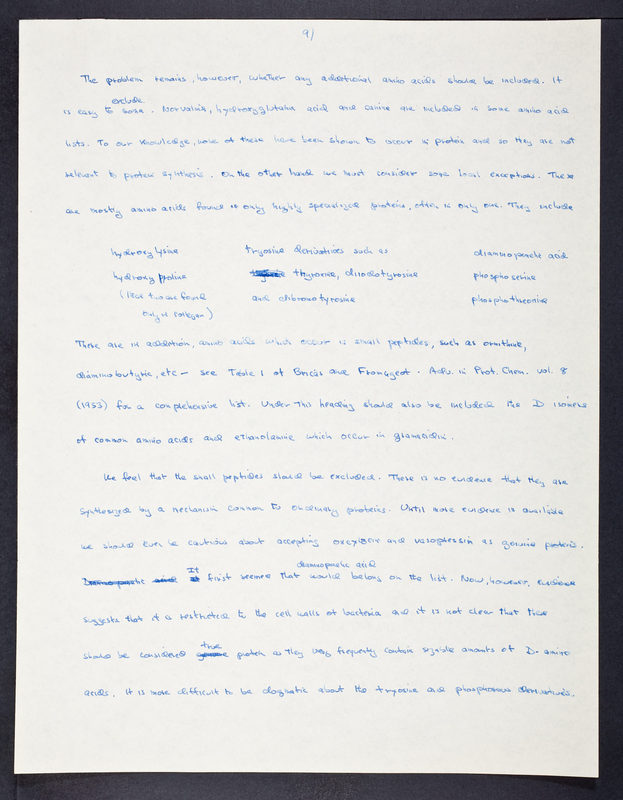 9)
The problem remains, however, whether any additional amino acids should be included. It
exclude
is easy to some. Norvaline, hydroxyglutamic acid and canine are included in some amino acid
lists. To our knowledge, none of these have been shown to occur in protein and so they are not
relevant to protein synthesis. On the other hand we must consider some local exceptions. These
are mostly amino acids found in only highly specialized proteins, often in only one. They include
hydroxy lysine
hydroxy proline
(these two are found
only in collagen)
tryosine derivatives such as
thyroxine, diiodotyrosine
and dibromotyrosine
diaminopimelic acid
phosphoserine
phosphothreonine
There are in addition, amino acids which occur in small peptides, such as ornithine,
diaminobutyric, etc — see Table 1 of Bricas and Fromageot. Adv. in Prot. Chem. vol. 8
(1953) for a comprehensive list. Under this heading should also be included the D isomers
of common amino acids and ethanolamine which occur in gramicidin.
We feel that the small peptides should be excluded. There is no evidence that they are
synthesized by a mechanism common to ordinary proteins. Until more evidence is available
we should even be cautious about accepting oxytocin and vasopressin as genuine proteins.
diaminopimelic acid
Diaminopimelic acid It at first seemed that would belong on the list. Now, however, evidence
suggests that it is restricted to the cell walls of bacteria and it is not clear that these
true
should be considered genuine protein as they very frequently contain sizable amounts of D-amino
acids. It is more difficult to be dogmatic about the tryosine and phosphorous derivatives.